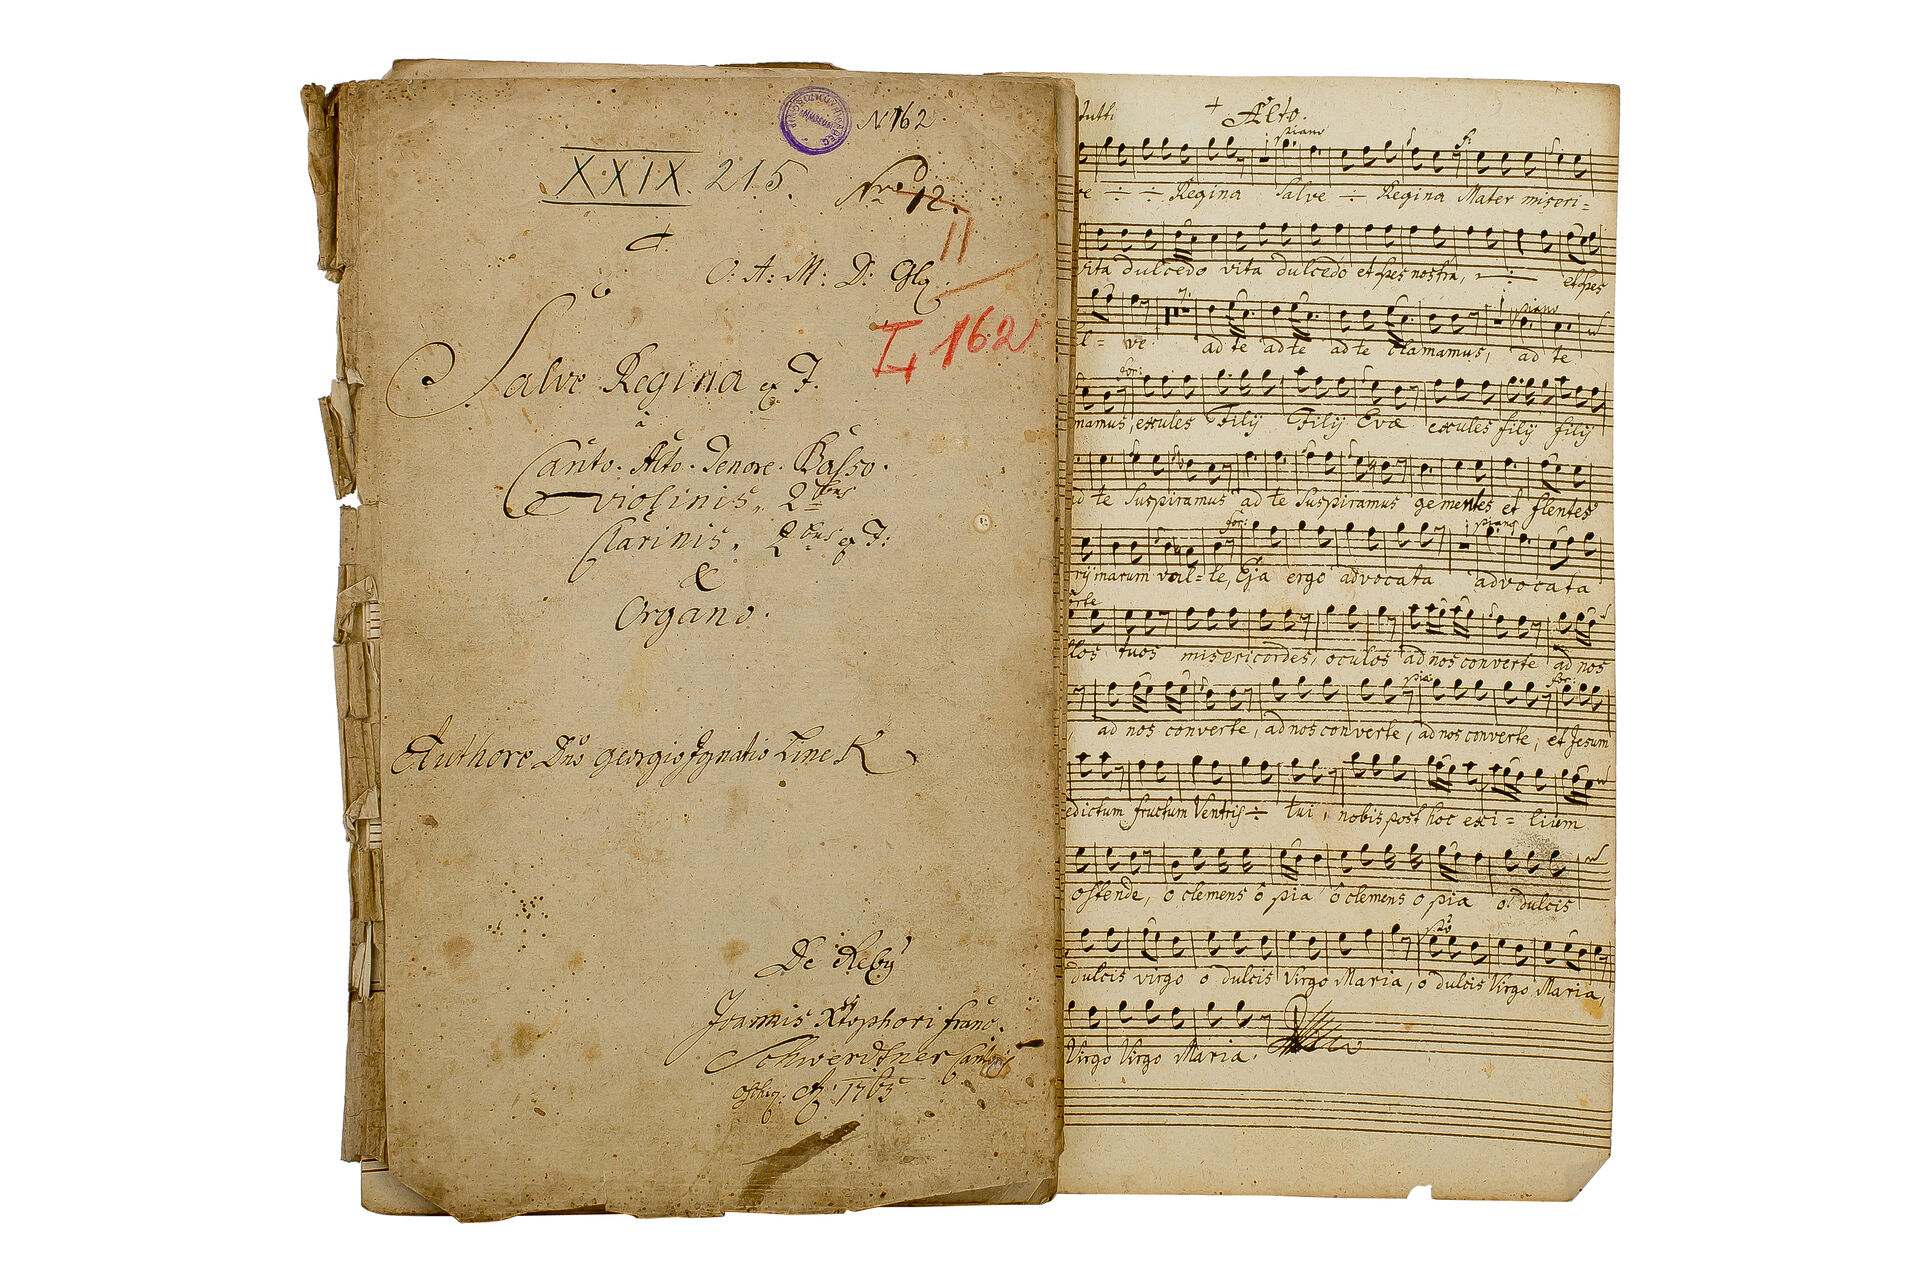 N 162
XXIX. 215.
Nro 12.
11
O: A: M: D: Glq
I, 162
Salve Regina ex F.
à
Canto. Alto. Tenore. Basso.
violinis, 2bus
Clarinis, 2bus ex F:
&
Organo.
Authore Dno Georgio Ignatio Linek
De Reby
Joannis Xstophori franc.
Schwerdtner Cantoris
A: 1765
tutti
Alto.
piano
f:
Regina Salve ÷ Regina Mater miseri=
vita dulcedo vita dulcedo et spes nostra, ÷ et spes
piano
ve. ad te ad te ad te clamamus, ad te
for:
mamus, exules Filij Filij Evæ exules filij filij
ad te suspiramus ad te suspiramus gementes et flentes
for: piano
rijmarum val=le, Eja ergo advocata advocata
orte
llos tuos misericordes, oculos ad nos converte ad nos
pia: for:
ad nos converte, ad nos converte, ad nos converte, et Jesum
edictum fructum Ventris ÷ tui, nobis post hoc exi=lium
ostende, o clemens ô pia ô clemens o pia o dulcis
dulcis virgo o dulcis Virgo Maria, o dulcis Virgo Maria,
Virgo Virgo Maria.